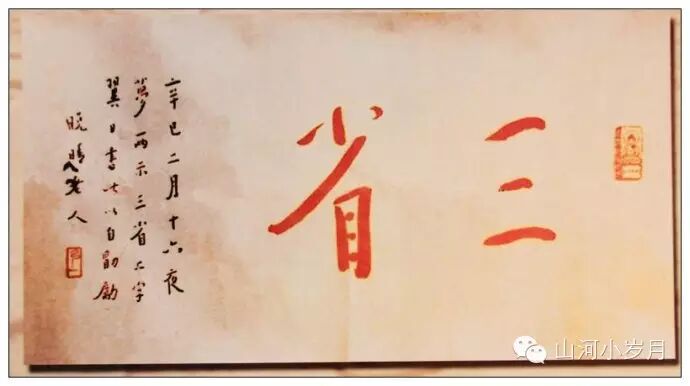 三省
辛巳二月十六夜
夢兩示三省二字
翼日書此以自勖勵
晚晴老人
山河小岁月